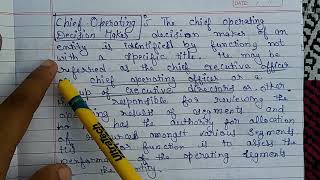 DATE
Chief Operating :- The chief operating
Decision Maker decision maker of an
entity is identified by function, not
with a specific title. He may be
referred as the chief executive officer
chief operating officer or a
up of executive directors or other.
is responsible for reviewing the
operating results of segments and
has the authority for allocation
of amongst various segments
or function is to assess the
performa of the operating segments
the entity.
UltraTech